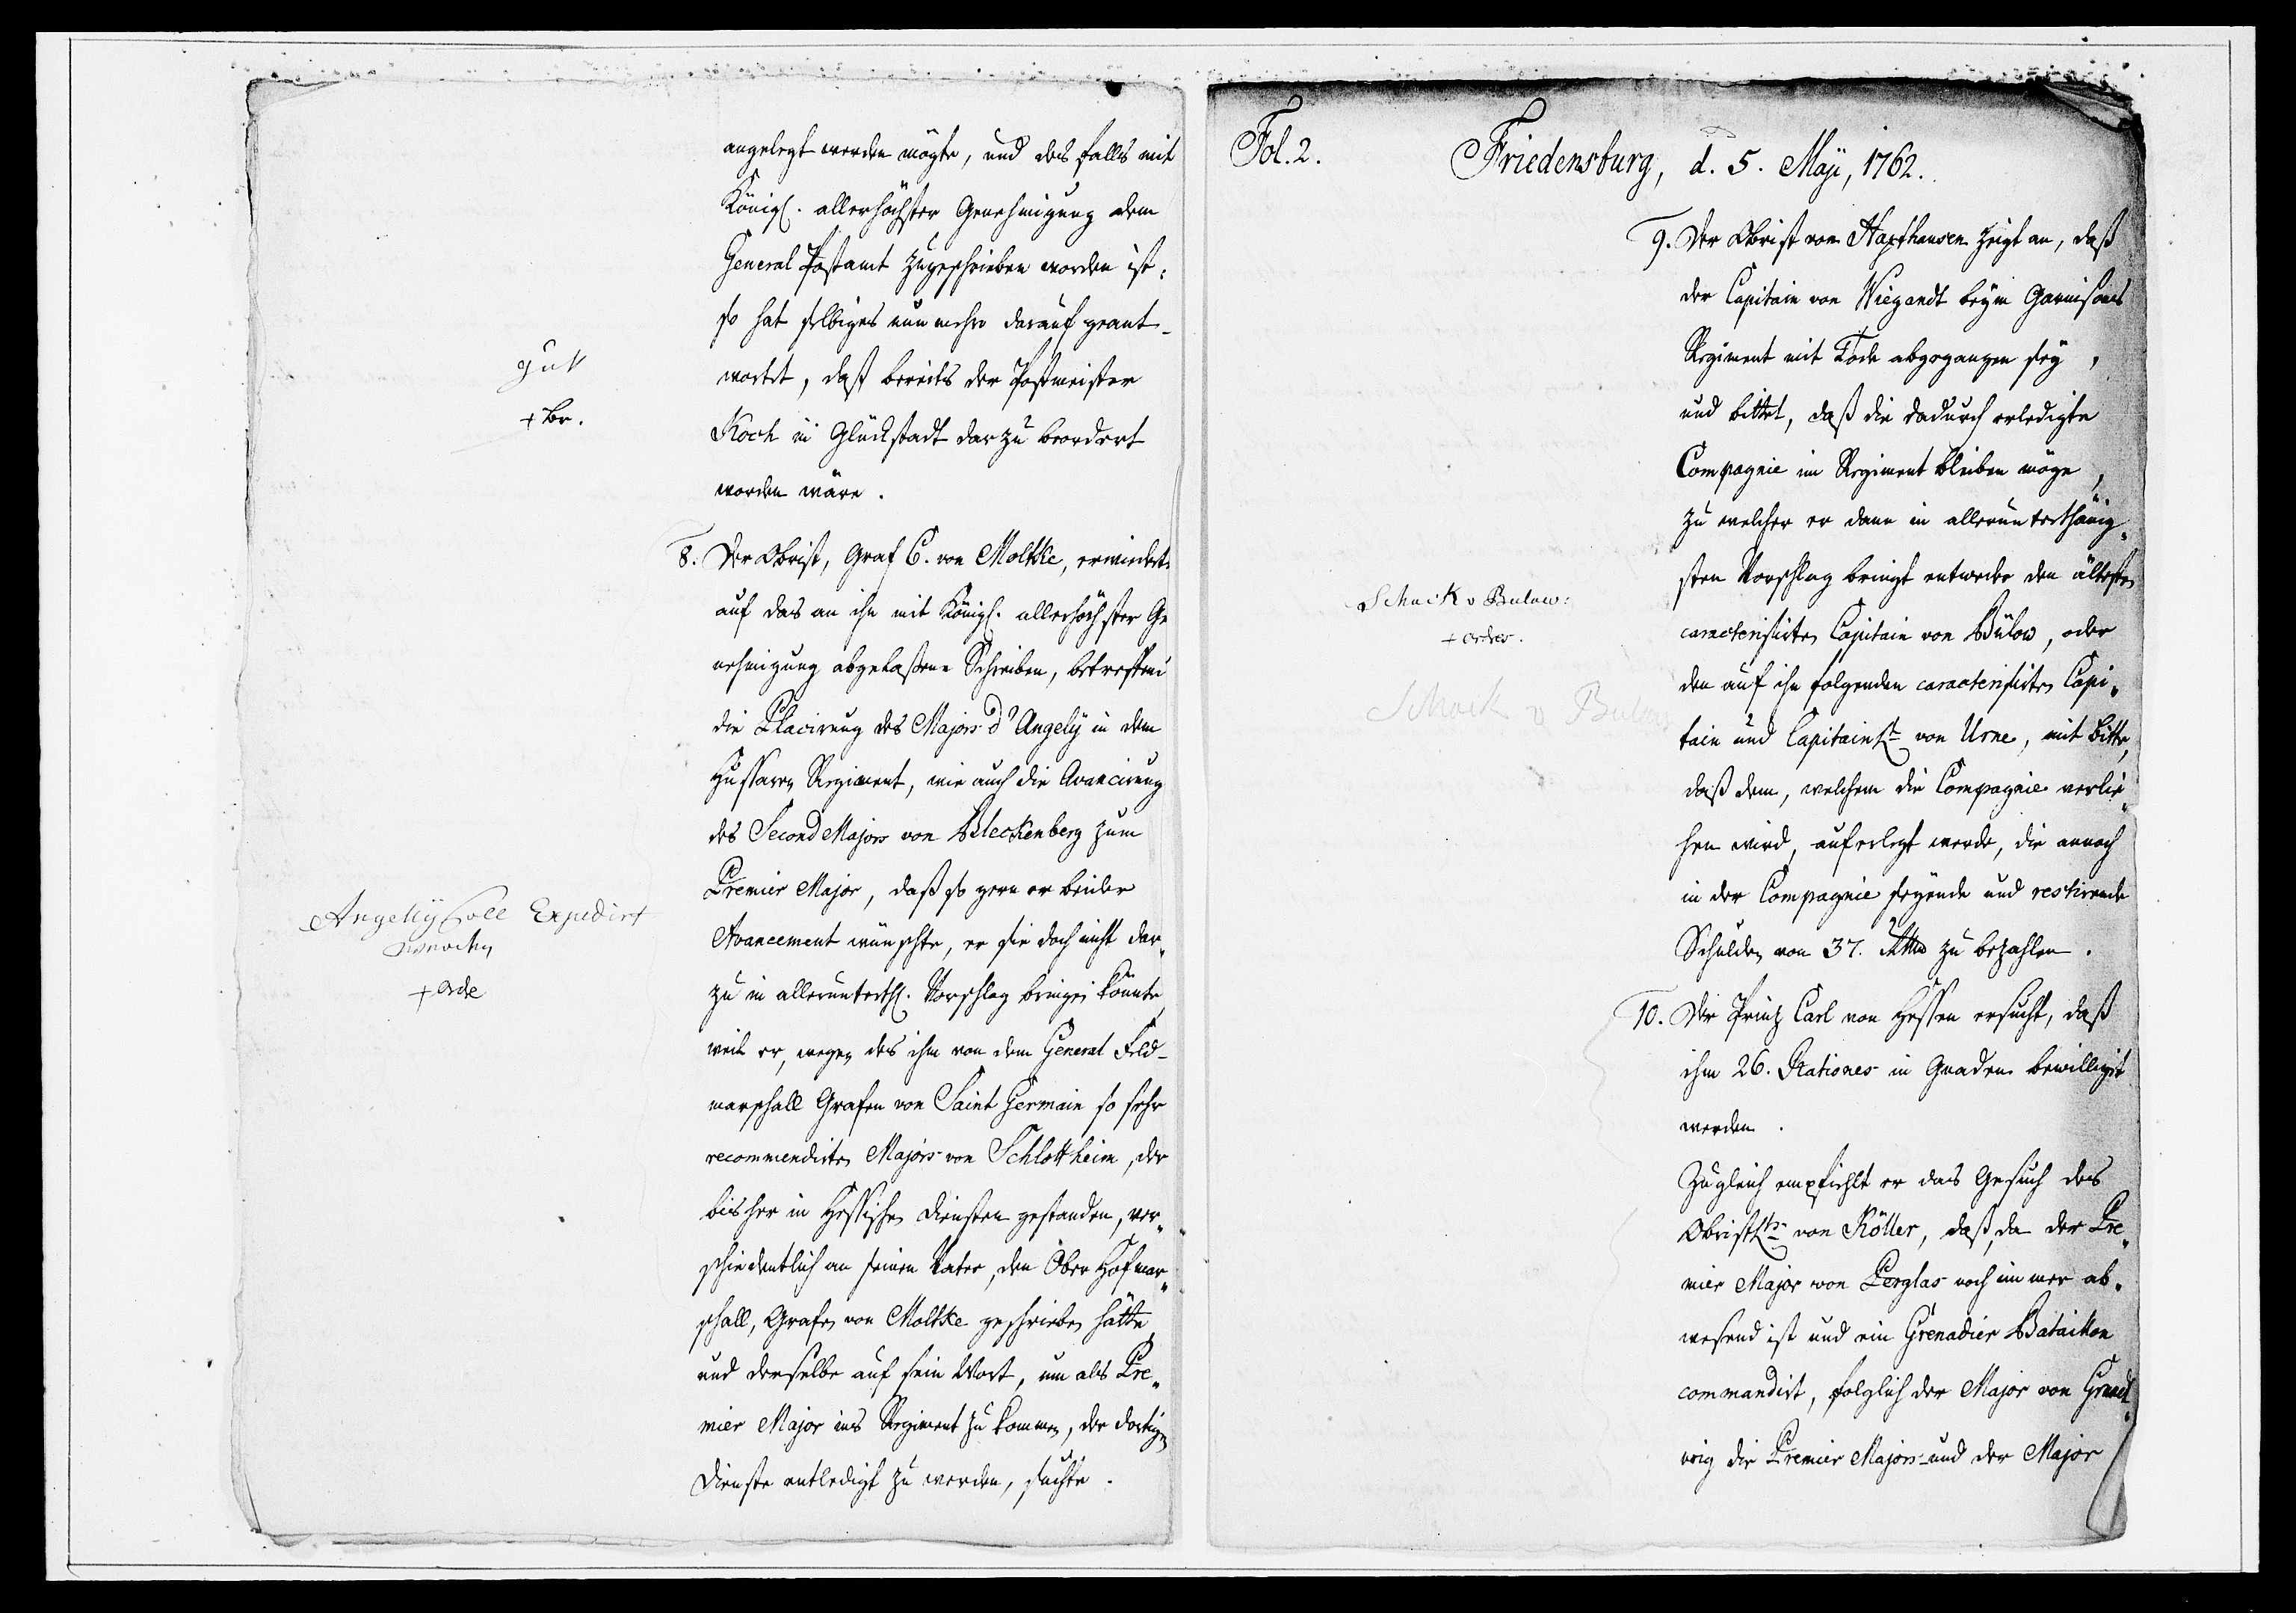 angelegt werden mögte, und des falls mit
Königl. allerhöchster Genehmigung dem
General Postamt zugeschrieben worden ist:
so hat selbiges nun mehro darauf geant-
wortet, daß bereits der Postmeister
Koch in Glückstadt darzu beordert
worden wäre.
gut
+ Br.
8. Der Obrist, Graf C. von Moltke, erwiedert
auf das an ihn mit Königl. allerhöchster Ge
nehmigung abgelaßene Schreiben, betreffend
die Placirung des Majors d'Angely in dem
Hussaren Regiment, wie auch die Avancirung
des Second Majors von Bleckenberg zum
Premier Major, daß so gern er beider
Avancement wünschte, er sie doch nicht dar„
zu in allerunterth. Vorschlag bringen könnte,
weil er, wegen des ihm von dem General Feld-
marschall Grafen von Saint Germain so sehr
recommendirten Majors von Schlottheim, der
bisher in Hessischen Diensten gestanden, ver„
schiedentlich an seinen Vater, den Ober Hofmar„
schall, Grafen von Moltke geschrieben hätte,
und derselbe auf sein Wort, um als Pre„
mier Major ins Regiment zu kommen, der dortigen
Dienste entledigt zu werden, suchte.
Angelij soll Expedirt
werden
+ orde
Fol. 2.
Friedensburg, d. 5. Maji, 1762.
9. Der Obrist von Haxthausen zeigt an, daß
der Capitain von Wiegandt beym Garnisons
Regiment mit Tode abgegangen sey,
und bittet, daß die dadurch erledigte
Compagnie im Regiment bleiben möge,
zu welcher er dann in allerunterthänig„
sten Vorschlag bringt entweder den ältesten
caracterisirten Capitain von Bülow, oder
den auf ihn folgenden caracterisirten Capi„
tain und Capitainlt. von Urne, mit Bitte,
daß dem, welchem die Compagnie verlie„
hen wird, auferlegt werde, die annoch
in der Compagnie seyende und restirende
Schulden von 37. Rthlr zu bezahlen.
Schack v Bulow:
+ order.
Schack v Bulow
10. Der Prinz Carl von Hessen ersucht, daß
ihm 26. Rationes in Gnaden bewilligt
werden.
Zugleich empfiehlt er das Gesuch des
Obristlts. von Köller, daß, da der Pre„
mier Major von Perglas noch immer ab„
wesend ist und ein Grenadier Bataillon
commandirt, folglich der Major von Grand„
vig die Premier Majors- und der Major